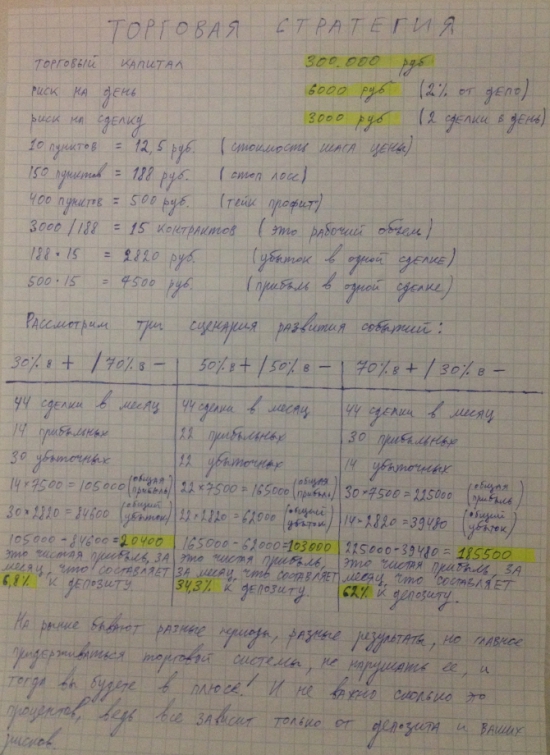 ТОРГОВАЯ СТРАТЕГИЯ
ТОРГОВЫЙ КАПИТАЛ 300.000 руб
РИСК НА ДЕНЬ 6000 руб (2% от депо)
РИСК НА СДЕЛКУ 3000 руб (2 сделки в день)
10 пунктов = 12,5 руб. (стоимость шага цены)
150 пунктов = 188 руб. (стоп лосс)
400 пунктов = 500 руб. (тейк профит)
3000/188 = 15 контрактов (это рабочий объем)
188·15 = 2820 руб. (убыток в одной сделке)
500·15 = 7500 руб. (прибыль в одной сделке)
Рассмотрим три сценария развития событий:
30% в + / 70% в - 50% в + / 50% в - 70% в + / 30% в -
44 сделки в месяц 44 сделки в месяц 44 сделки в месяц
14 прибыльных 22 прибыльных 30 прибыльных
30 убыточных 22 убыточных 14 убыточных
14×7500=105000 (общая прибыль) 22×7500=165000 (общая прибыль) 30×7500=225000 (общая прибыль)
30×2820=84600 (общий убыток) 22×2820=62000 (общий убыток) 14×2820=39480 (общий убыток)
105000-84600=20400 165000-62000=103000 225000-39480=185500
это чистая прибыль, за это чистая прибыль, это чистая прибыль, за
месяц, что составляет за месяц, что составляет месяц, что составляет
6,8% к депозиту 34,3% к депозиту. 62% к депозиту.
На рынке бывают разные периоды, разные результаты, но главное
придерживаться торговой системы, не нарушать ее, и
тогда вы будете в плюсе! И не важно сколько это
процентов, ведь все зависит только от депозита и ваших
рисков.